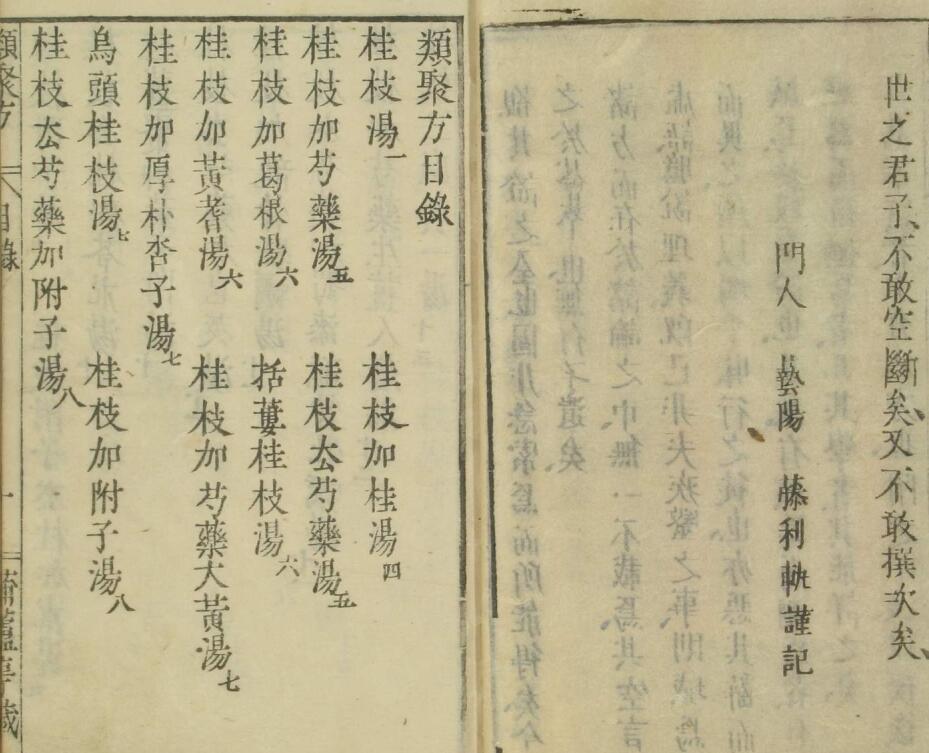 世之君子、不敢空斷矣又不敢撰次矣、
門人 藝陽 藤利執謹記
類聚方目錄
桂枝湯一 桂枝加桂湯四
桂枝加芍藥湯五 桂枝去芍藥湯五
桂枝加葛根湯六 括蔞桂枝湯六
桂枝加黃耆湯六 桂枝加芍藥大黃湯七
桂枝加厚朴杏子湯七
烏頭桂枝湯七 桂枝加附子湯八
桂枝去芍藥加附子湯八
類聚方 目錄 一